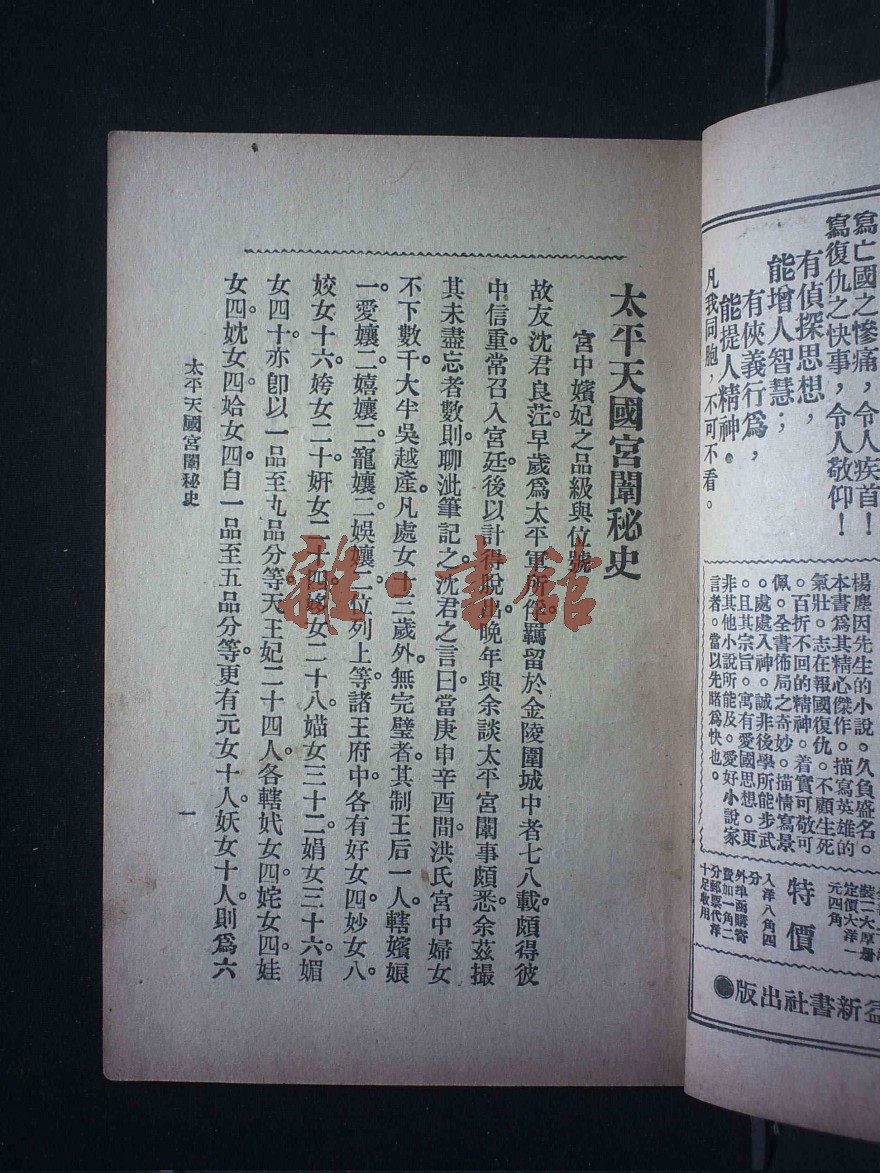 寫亡國之慘痛，令人疾首！
寫復仇之快事，令人敬仰！
有偵探思想，
能增人智慧；
有俠義行爲，
能提人精神。
凡我同胞，不可不看。
楊塵因先生的小說。久負盛名。
本書爲其精心傑作。描寫英雄的
氣壯。志在報國復仇。不顧生死
。百折不回的精神。着實可敬可
佩。全書佈局之奇妙。描情寫景
。處處入神。誠非後學所能步武
。且其宗旨。寓有愛國思想。更
非其他小說所能及。愛好小說家
言者。當以先睹爲快也。
裝二大厚册
定價大洋一
元四角
特價
入洋八角四
分
外埠函購寄
費加一角二
分郵票代洋
十足收用
益新書社出版
太平天國宮闈秘史
宮中嬪妃之品級與位號
故友沈君良茳早歲爲太平軍所俘羈留於金陵圍城中者七八載頗得彼
中信重常召入宮廷後以計得脫出晚年與余談太平宮闈事頗悉余茲撮
其未盡忘者數則聊泚筆記之沈君之言曰當庚申辛酉間洪氏宮中婦女
不下數千大半吳越產凡處女十三歲外無完璧者其制王后一人轄嬪娘
一愛孃二嬉孃二寵孃二娛孃二位列上等諸王府中各有好女四妙女八
姣女十六姱女二十妍女二十四姼女二十八媌女三十二娟女三十六媚
女四十亦卽以一品至九品分等天王妃二十四人各轄妷女四姹女四娃
女四妉女四姶女四自一品至五品分等更有元女十人妖女十人則爲六
太平天國宮闈秘史
一
雜·書館